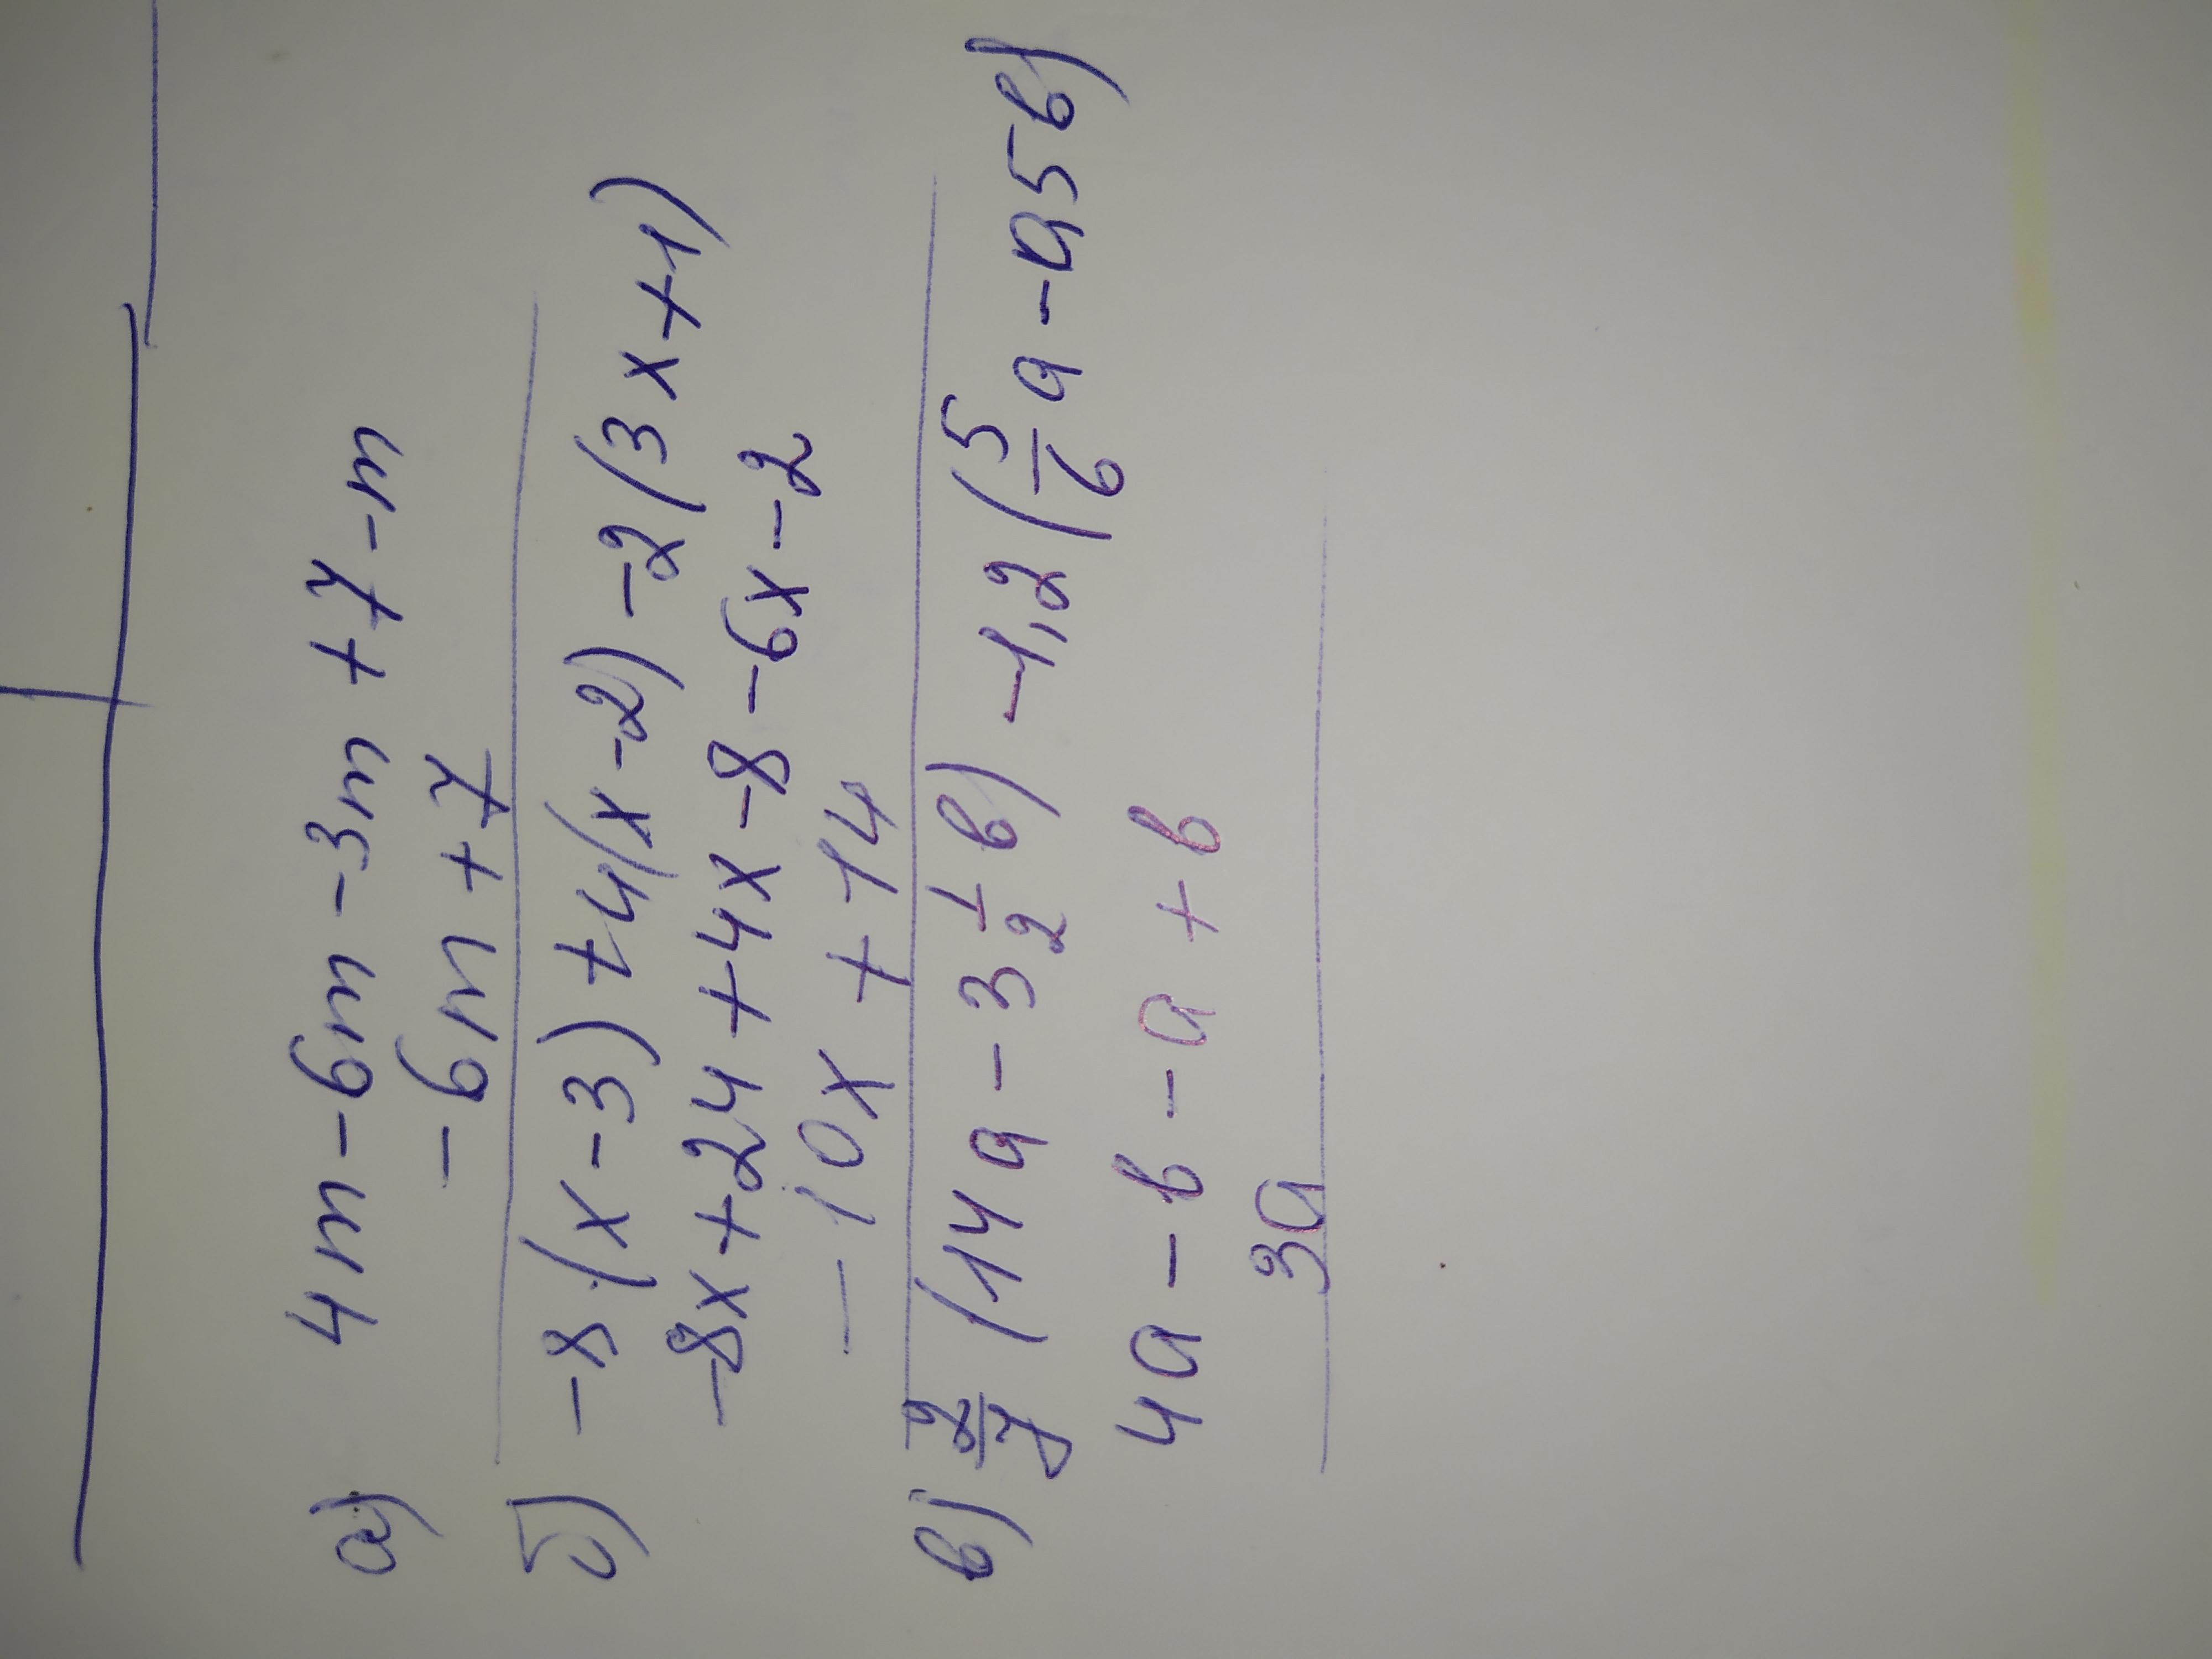 а) 4m - 6m - 3m + 7 - m
- 6m + 7
б) -8(x-3)+4(x-2)-2(3x+1)
-8x+24+4x-8-6x-2
-10x + 14
в) 2/7 (14a - 3 1/2 в) - 1,2 (5/6 a - 0,5 в)
4a - в - a + в
3a